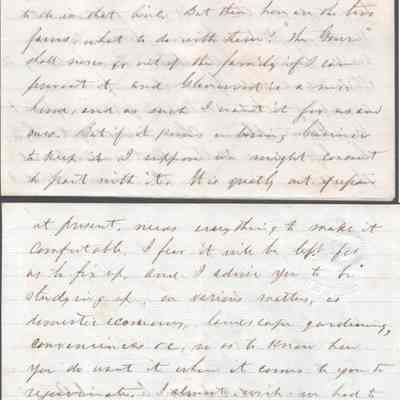 to do in that line. But then here are the two
farms, what to do with them? "The Grove"
shall never go out of the family if I can
prevent it, and Glenwood is a nice
home, and as such I want it for us and
ours. But if it proves a losing business
to keep it I suppose we might consent
to part with it. It is greatly out of repair
at present, needs everything to make it
comfortable. I fear it will be left for
us to fix up, and I advise you to be
studying up, on various matters, as
domestic economy, landscape gardening,
conveniences &c, so as to know how
you do want it when it comes to you to
rejuvinate. I almost wish we had to